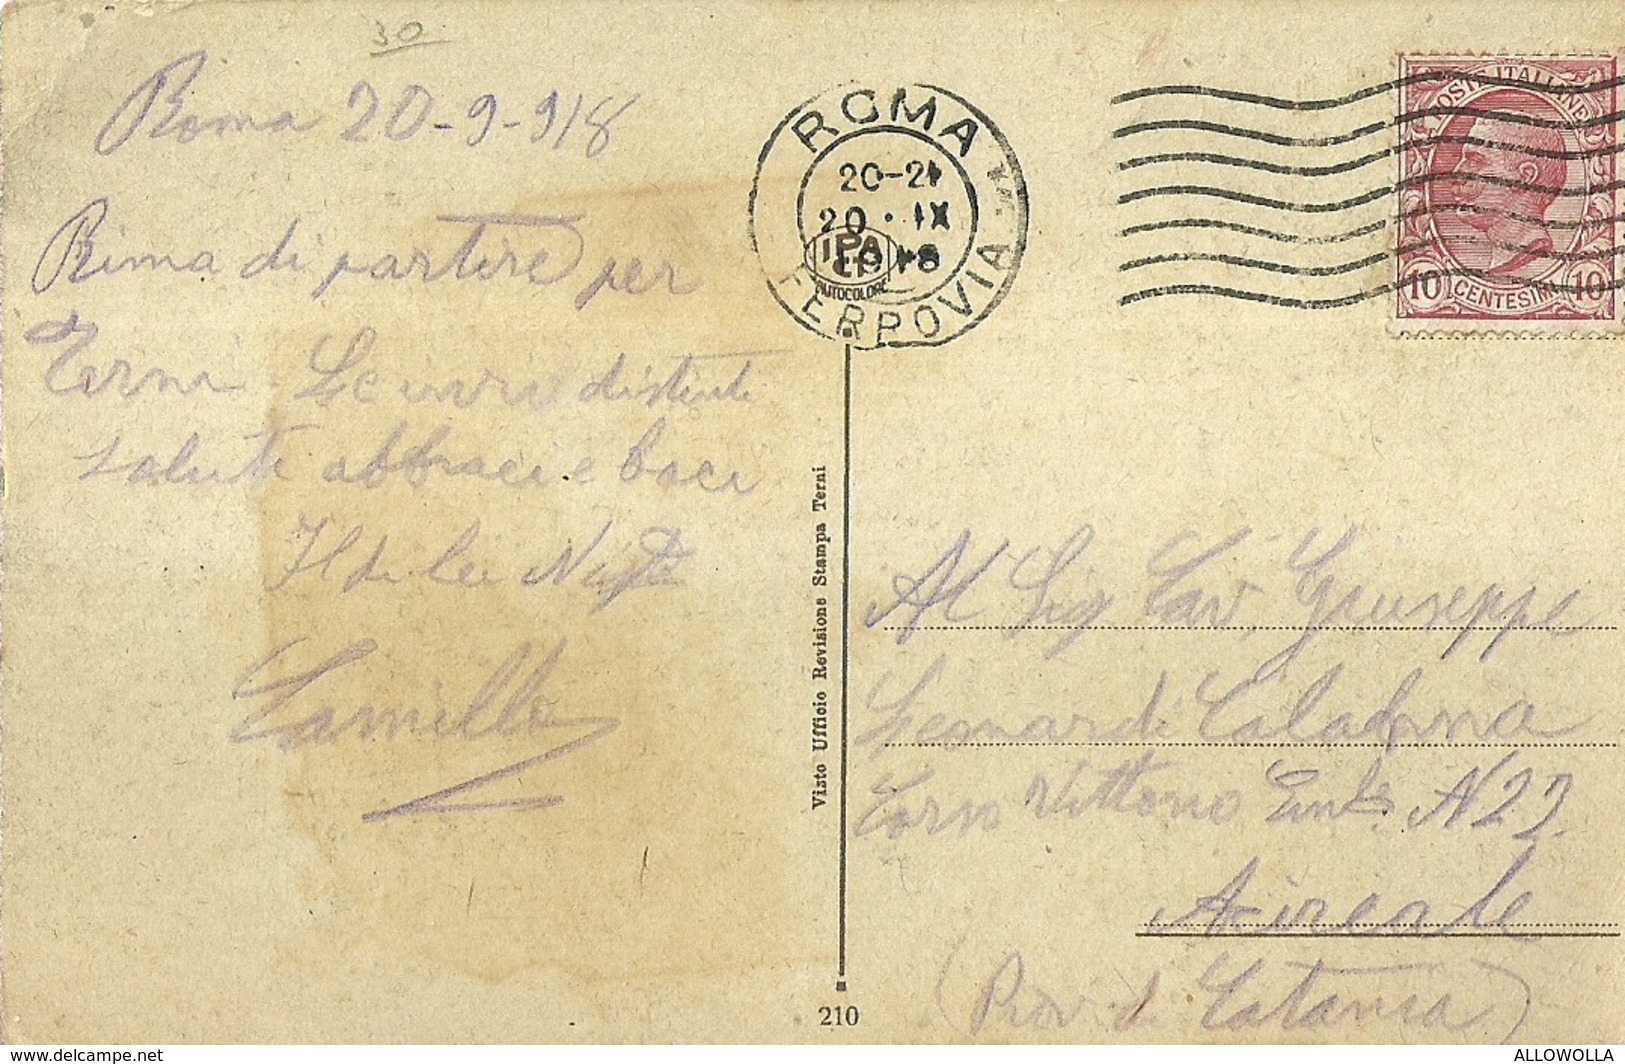 30
Roma 20-9-918
Prima di partire per
Terni Le invio distinti
saluti abbracci e baci
Il di lei Nipote
Camillo
ROMA
20-21
20 · IX
1918
FERROVIA
IPA
CT
AUTOCOLORE
POSTE ITALIANE
10 CENTESIMI 10
Visto Ufficio Revisione Stampa Terni
210
Al Sig Cav. Giuseppe
Leonardi Calatna
Corso Vittorio Eml. N 22
Aireale
(Prov di Catania)
delcampe.net
ALLOWOLLA